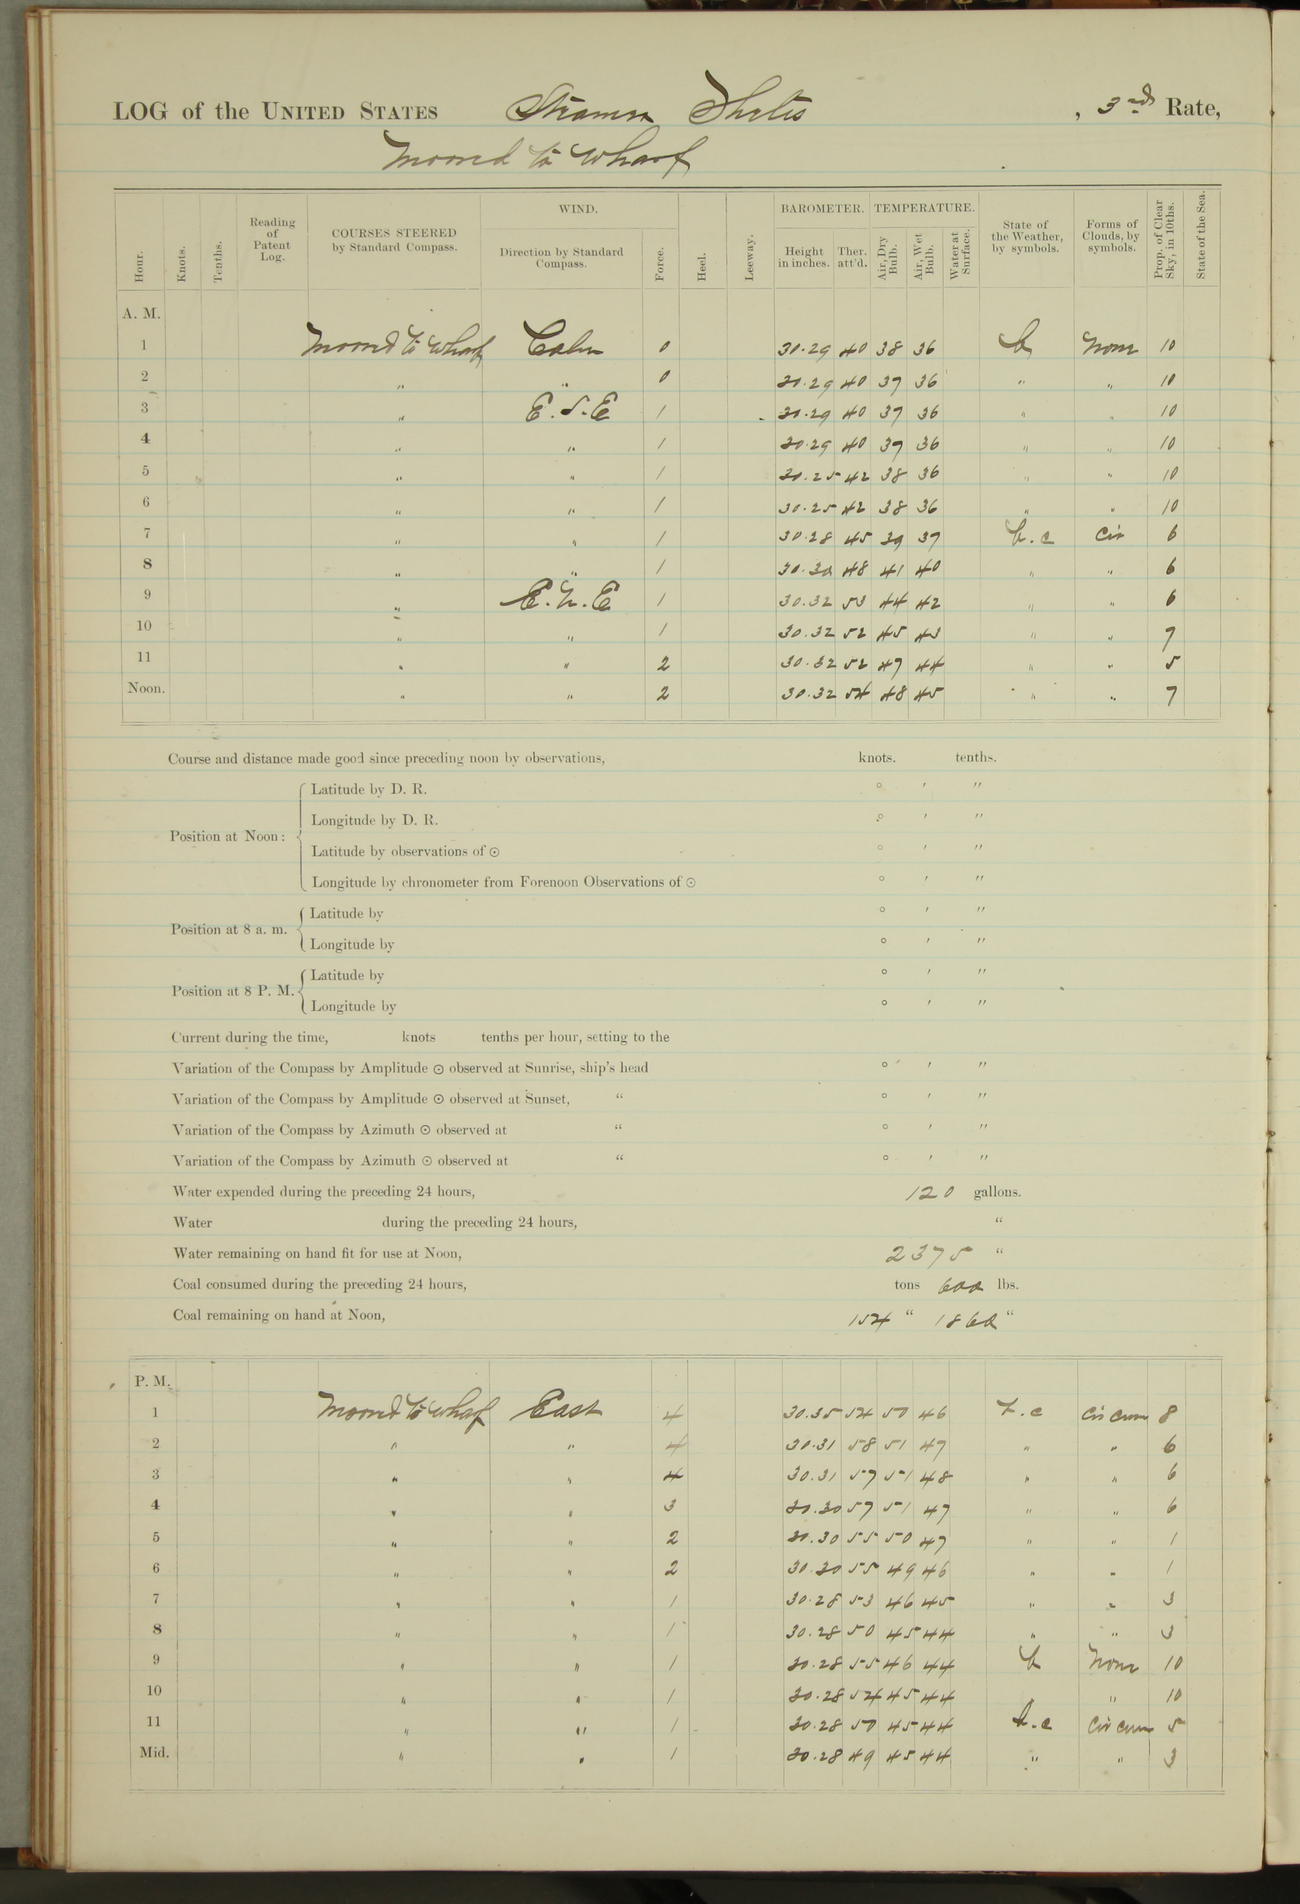 LOG of the UNITED STATES Steamer Thetis , 3rd Rate,
Moored to Wharf
Hour. Knots. Tenths. Reading of Patent Log. COURSES STEERED by Standard Compass. WIND. Direction by Standard Compass. Force. Heel. Leeway. BAROMETER. Height in inches. Ther. att'd. TEMPERATURE. Air, Dry Bulb. Air, Wet Bulb. Water at Surface. State of the Weather, by symbols. Forms of Clouds, by symbols. Prop. of Clear Sky, in 10ths. State of the Sea.
A. M.
1 Moored to Wharf Calm 0 30.29 40 38 36 b None 10
2 " " 0 30.29 40 37 36 " " 10
3 " E.S.E 1 30.29 40 37 36 " " 10
4 " " 1 30.29 40 37 36 " " 10
5 " " 1 30.25 42 38 36 " " 10
6 " " 1 30.25 42 38 36 " " 10
7 " " 1 30.28 45 39 37 b.c Cir 6
8 " " 1 30.30 48 41 40 " " 6
9 " E.N.E 1 30.32 53 44 42 " " 6
10 " " 1 30.32 52 45 43 " " 7
11 " " 2 30.32 52 47 44 " " 5
Noon. " " 2 30.32 54 48 45 " " 7
Course and distance made good since preceding noon by observations, knots. tenths.
Latitude by D. R. ° ′ ″
Longitude by D. R. ° ′ ″
Position at Noon:
Latitude by observations of ☉ ° ′ ″
Longitude by chronometer from Forenoon Observations of ☉ ° ′ ″
Latitude by ° ′ ″
Position at 8 a. m.
Longitude by ° ′ ″
Latitude by ° ′ ″
Position at 8 P. M.
Longitude by ° ′ ″
Current during the time, knots tenths per hour, setting to the
Variation of the Compass by Amplitude ☉ observed at Sunrise, ship's head ° ′ ″
Variation of the Compass by Amplitude ☉ observed at Sunset, " ° ′ ″
Variation of the Compass by Azimuth ☉ observed at " ° ′ ″
Variation of the Compass by Azimuth ☉ observed at " ° ′ ″
Water expended during the preceding 24 hours, 120 gallons.
Water during the preceding 24 hours, "
Water remaining on hand fit for use at Noon, 2375 "
Coal consumed during the preceding 24 hours, tons 600 lbs.
Coal remaining on hand at Noon, 154 " 1860 "
P. M.
1 Moored to Wharf East 4 30.35 54 50 46 b.c Cir cum 8
2 " " 4 30.31 58 51 47 " " 6
3 " " 4 30.31 57 51 48 " " 6
4 " " 3 30.30 57 51 47 " " 6
5 " " 2 30.30 55 50 47 " " 1
6 " " 2 30.30 55 49 46 " " 1
7 " " 1 30.28 53 46 45 " " 3
8 " " 1 30.28 50 45 44 " " 3
9 " " 1 30.28 55 46 44 b None 10
10 " " 1 30.28 54 45 44 " " 10
11 " " 1 30.28 50 45 44 b.c Cir cum 5
Mid. " " 1 30.28 49 45 44 " " 3